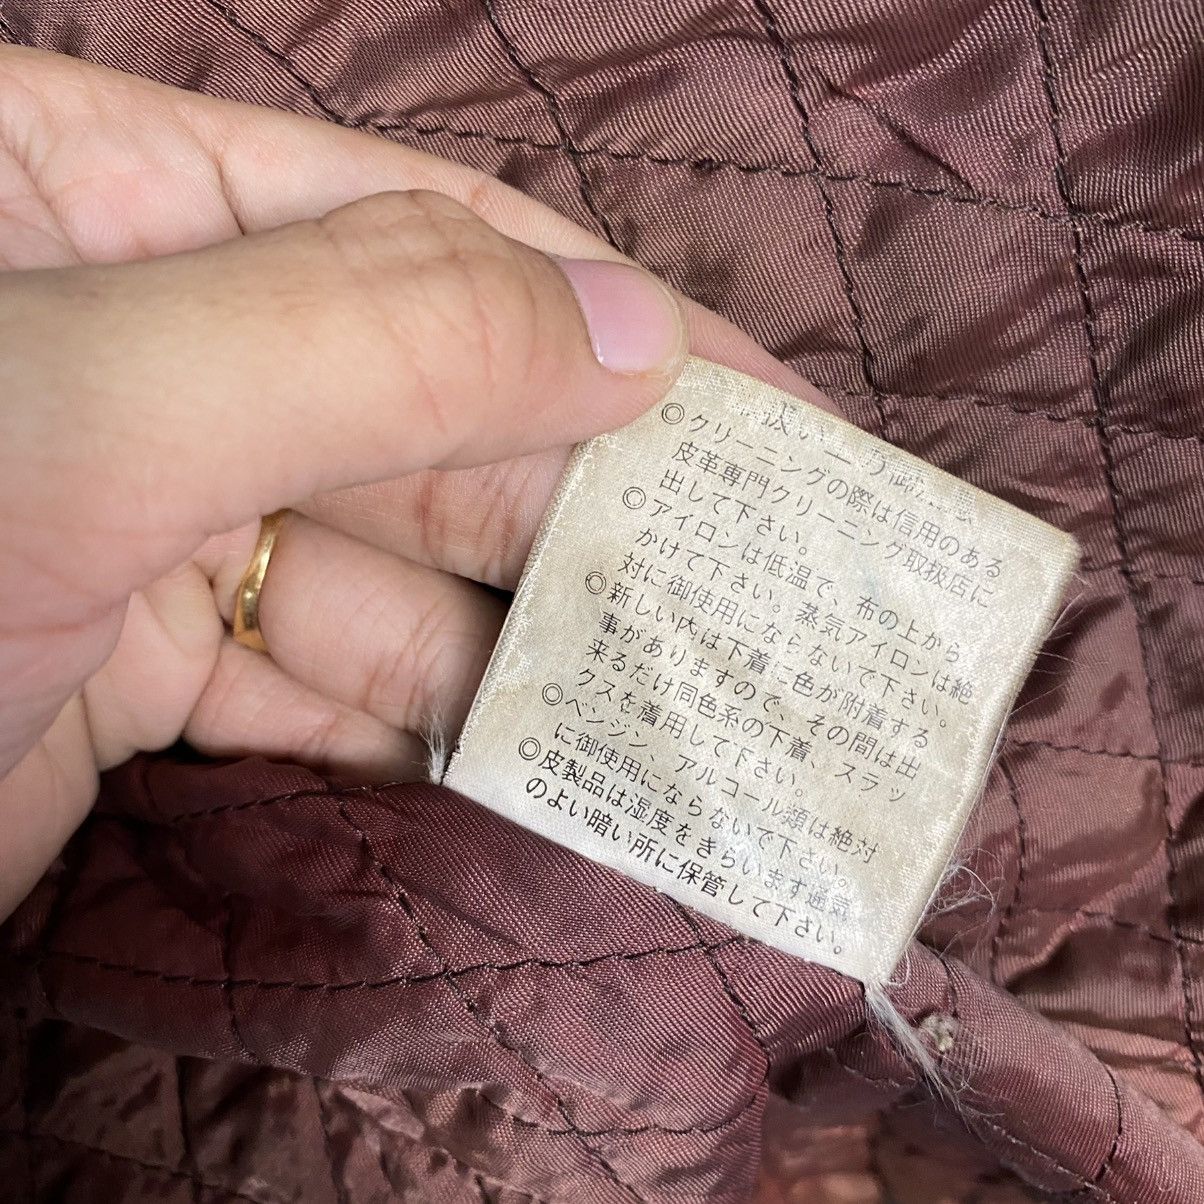 扱い上の御注意
◎クリーニングの際は信用のある
皮革専門クリーニング取扱店に
出して下さい。
◎アイロンは低温で、布の上から
かけて下さい。蒸気アイロンは絶
対に御使用にならないで下さい。
◎新しい内は下着に色が附着する
事がありますので、その間は出
来るだけ同色系の下着、スラッ
クスを着用して下さい。
◎ベンジン、アルコール類は絶対
に御使用にならないで下さい。
◎皮製品は湿度をきらいます通気
のよい暗い所に保管して下さい。